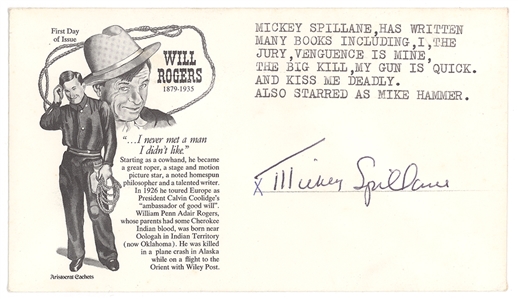 First Day
of Issue
WILL
ROGERS
1879-1935
"...I never met a man
I didn't like."
Starting as a cowhand, he became
a great roper, a stage and motion
picture star, a noted homespun
philosopher and a talented writer.
In 1926 he toured Europe as
President Calvin Coolidge's
"ambassador of good will".
William Penn Adair Rogers,
whose parents had some Cherokee
Indian blood, was born near
Oologah in Indian Territory
(now Oklahoma). He was killed
in a plane crash in Alaska
while on a flight to the
Orient with Wiley Post.
Aristocrat Cachets
MICKEY SPILLANE,HAS WRITTEN
MANY BOOKS INCLUDING,I,THE
JURY,VENGUENCE IS MINE,
THE BIG KILL,MY GUN IS QUICK.
AND KISS ME DEADLY.
ALSO STARRED AS MIKE HAMMER.
X Mickey Spillane